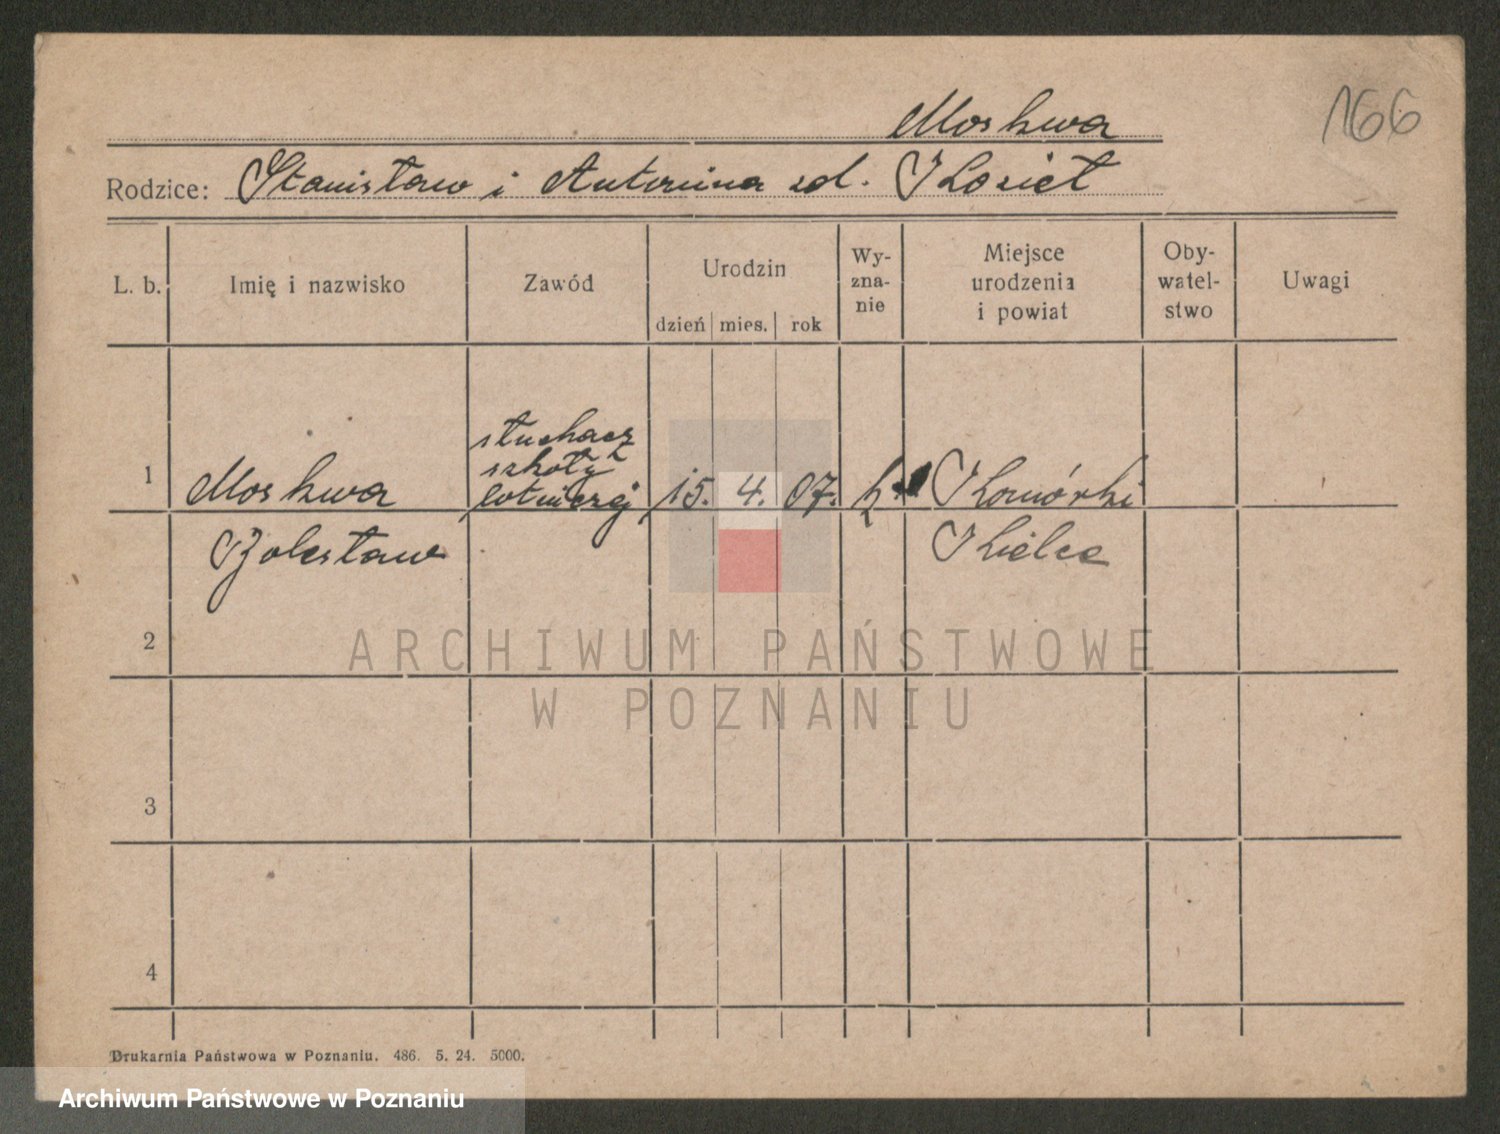 Moskwa
166
Rodzice: Stanisław i Antonina zd. Kozieł
L. b. Imię i nazwisko Zawód Urodzin dzień mies. rok Wy-zna-nie Miejsce urodzenia i powiat Oby-watel-stwo Uwagi
słuchacz
szkoły
1 Moskwa lotniczej 15. 4. 07. k. Komórki
Bolesław Kielce
2
ARCHIWUM PAŃSTWOWE
W POZNANIU
3
4
Drukarnia Państwowa w Poznaniu. 486. 5. 24. 5000.
Archiwum Państwowe w Poznaniu